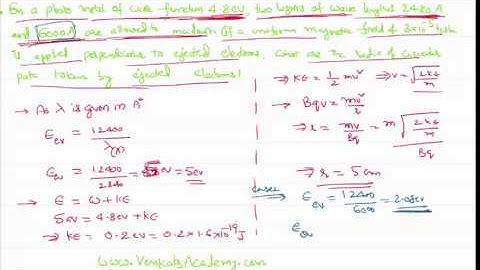 On a photo metal of work function 4.8 eV two beams of wave lengths 2480 A
and 6000 A are allowed to incident. If a uniform magnetic field of
is applied perpendicular to ejected electrons, what are the radii of circular
path taken by ejected electrons!
→ As λ is given in A°
E eV = 12400 / λ(A)
E eV = 12400 / 2480 = 5 eV = 5 eV
→ E = W + KE
5 eV = 4.8 eV + KE
→ KE = 0.2 eV = 0.2 × 1.6 × 10⁻¹⁹ J
⇒ KE = 1/2 mv² ⇒ v = √(2KE/m)
→ Bqv = mv²/r
⇒ r = mv/Bq = m√(2KE/m) / Bq
⇒ r = 5 cm
E eV = 12400 / 6000 = 2.08 eV
E eV
www.VenkatsAcademy.com